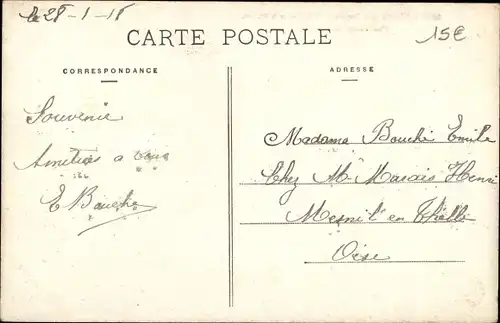 le 28-1-18
15€
CARTE POSTALE
CORRESPONDANCE
ADRESSE
Souvenir
Amitiés a vous
E Bouche
Madame Bouché Emile
Chez Mr Marais Henri
Mesnil en Thelle
Oise